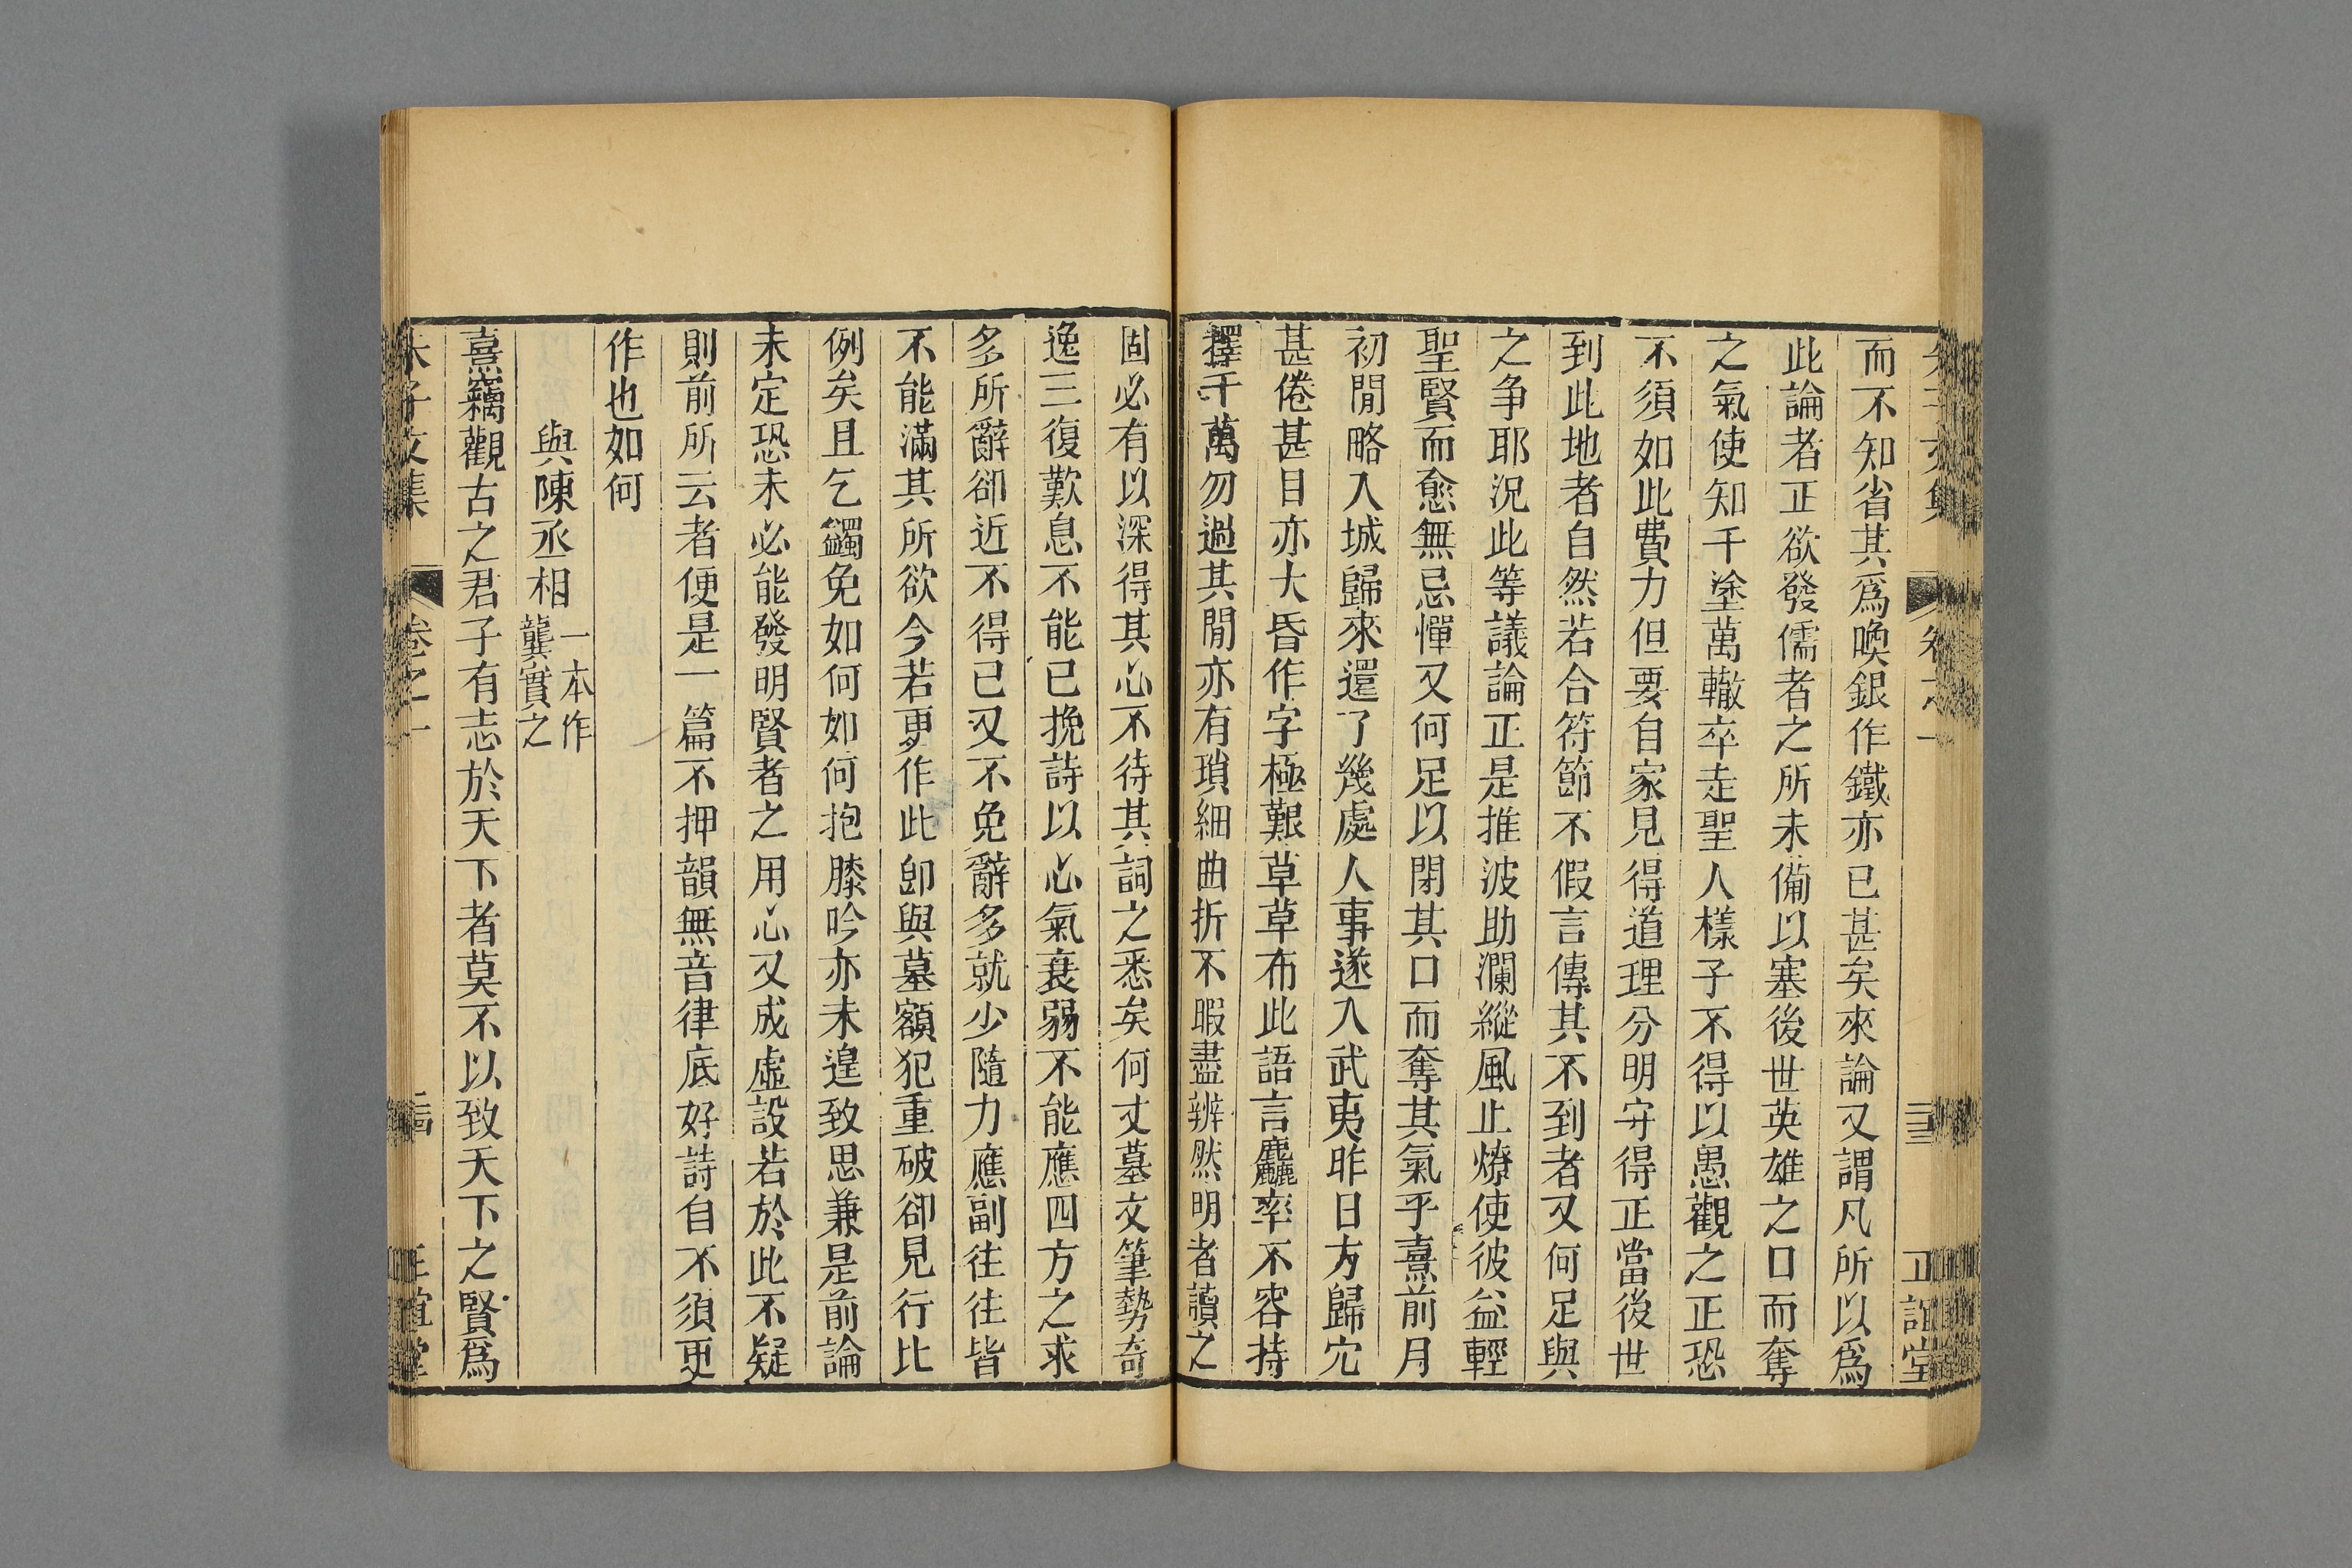 而不知省其爲喚銀作鐵亦已甚矣來論又謂凡所以爲
此論者正欲發儒者之所未備以塞後世英雄之口而奪
之氣使知千塗萬轍卒走聖人樣子不得以愚觀之正恐
不須如此費力但要自家見得道理分明守得正當後世
到此地者自然若合符節不假言傳其不到者又何足與
之争耶況此等議論正是推波助瀾縱風止燎使彼益輕
聖賢而愈無忌憚又何足以閉其口而奪其氣乎熹前月
初閒略入城歸來還了幾處人事遂入武夷昨日方歸冗
甚倦甚目亦大昏作字極艱草草布此語言麤率不容持
擇千萬勿過其閒亦有瑣細曲折不暇盡辨然明者讀之
固必有以深得其心不待其詞之悉矣何丈墓文筆勢奇
逸三復歎息不能已挽詩以心氣衰弱不能應四方之求
多所辭卻近不得已又不免辭多就少隨力應副往往皆
不能滿其所欲今若更作此卽與墓額犯重破卻見行比
例矣且乞蠲免如何如何抱膝吟亦未遑致思兼是前論
未定恐未必能發明賢者之用心又成虛設若於此不疑
則前所云者便是一篇不押韻無音律底好詩自不須更
作也如何
與陳丞相一本作龔實之
熹竊觀古之君子有志於天下者莫不以致天下之賢爲
朱子文集 卷之一